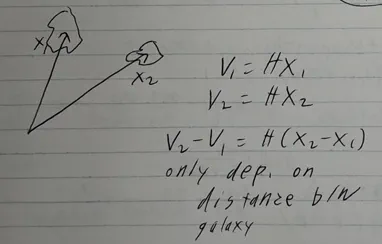 X₁
X₂
V₁ = HX₁
V₂ = HX₂
V₂-V₁ = H(X₂-X₁)
only dep. on
distance b/w
galaxy